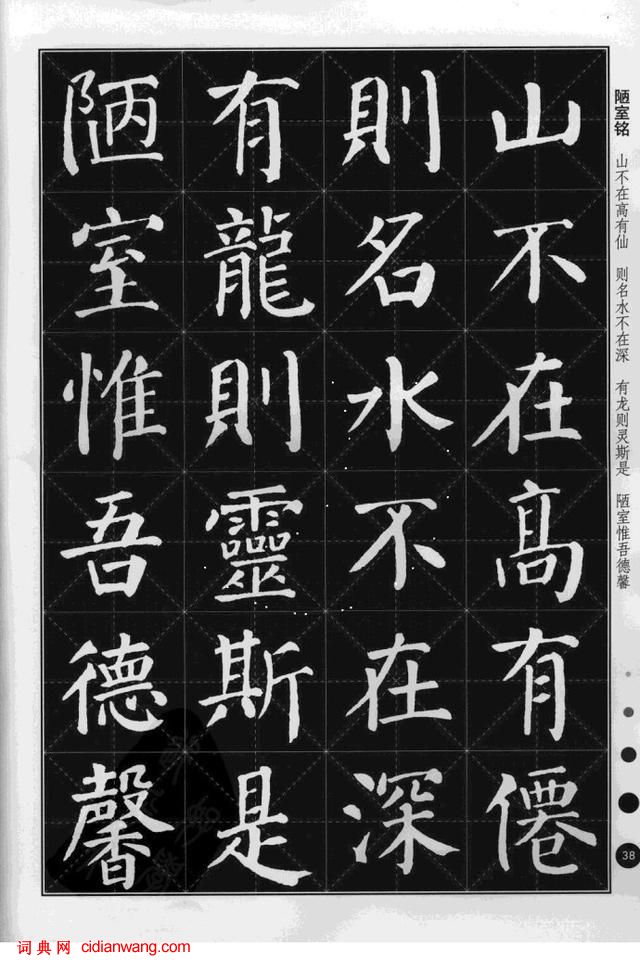 陋室铭 山不在高有仙 则名水不在深 有龙则灵斯是 陋室惟吾德馨
山不在高有僊
則名水不在深
有龍則靈斯是
陋室惟吾德馨
38
词典网 cidianwang.com